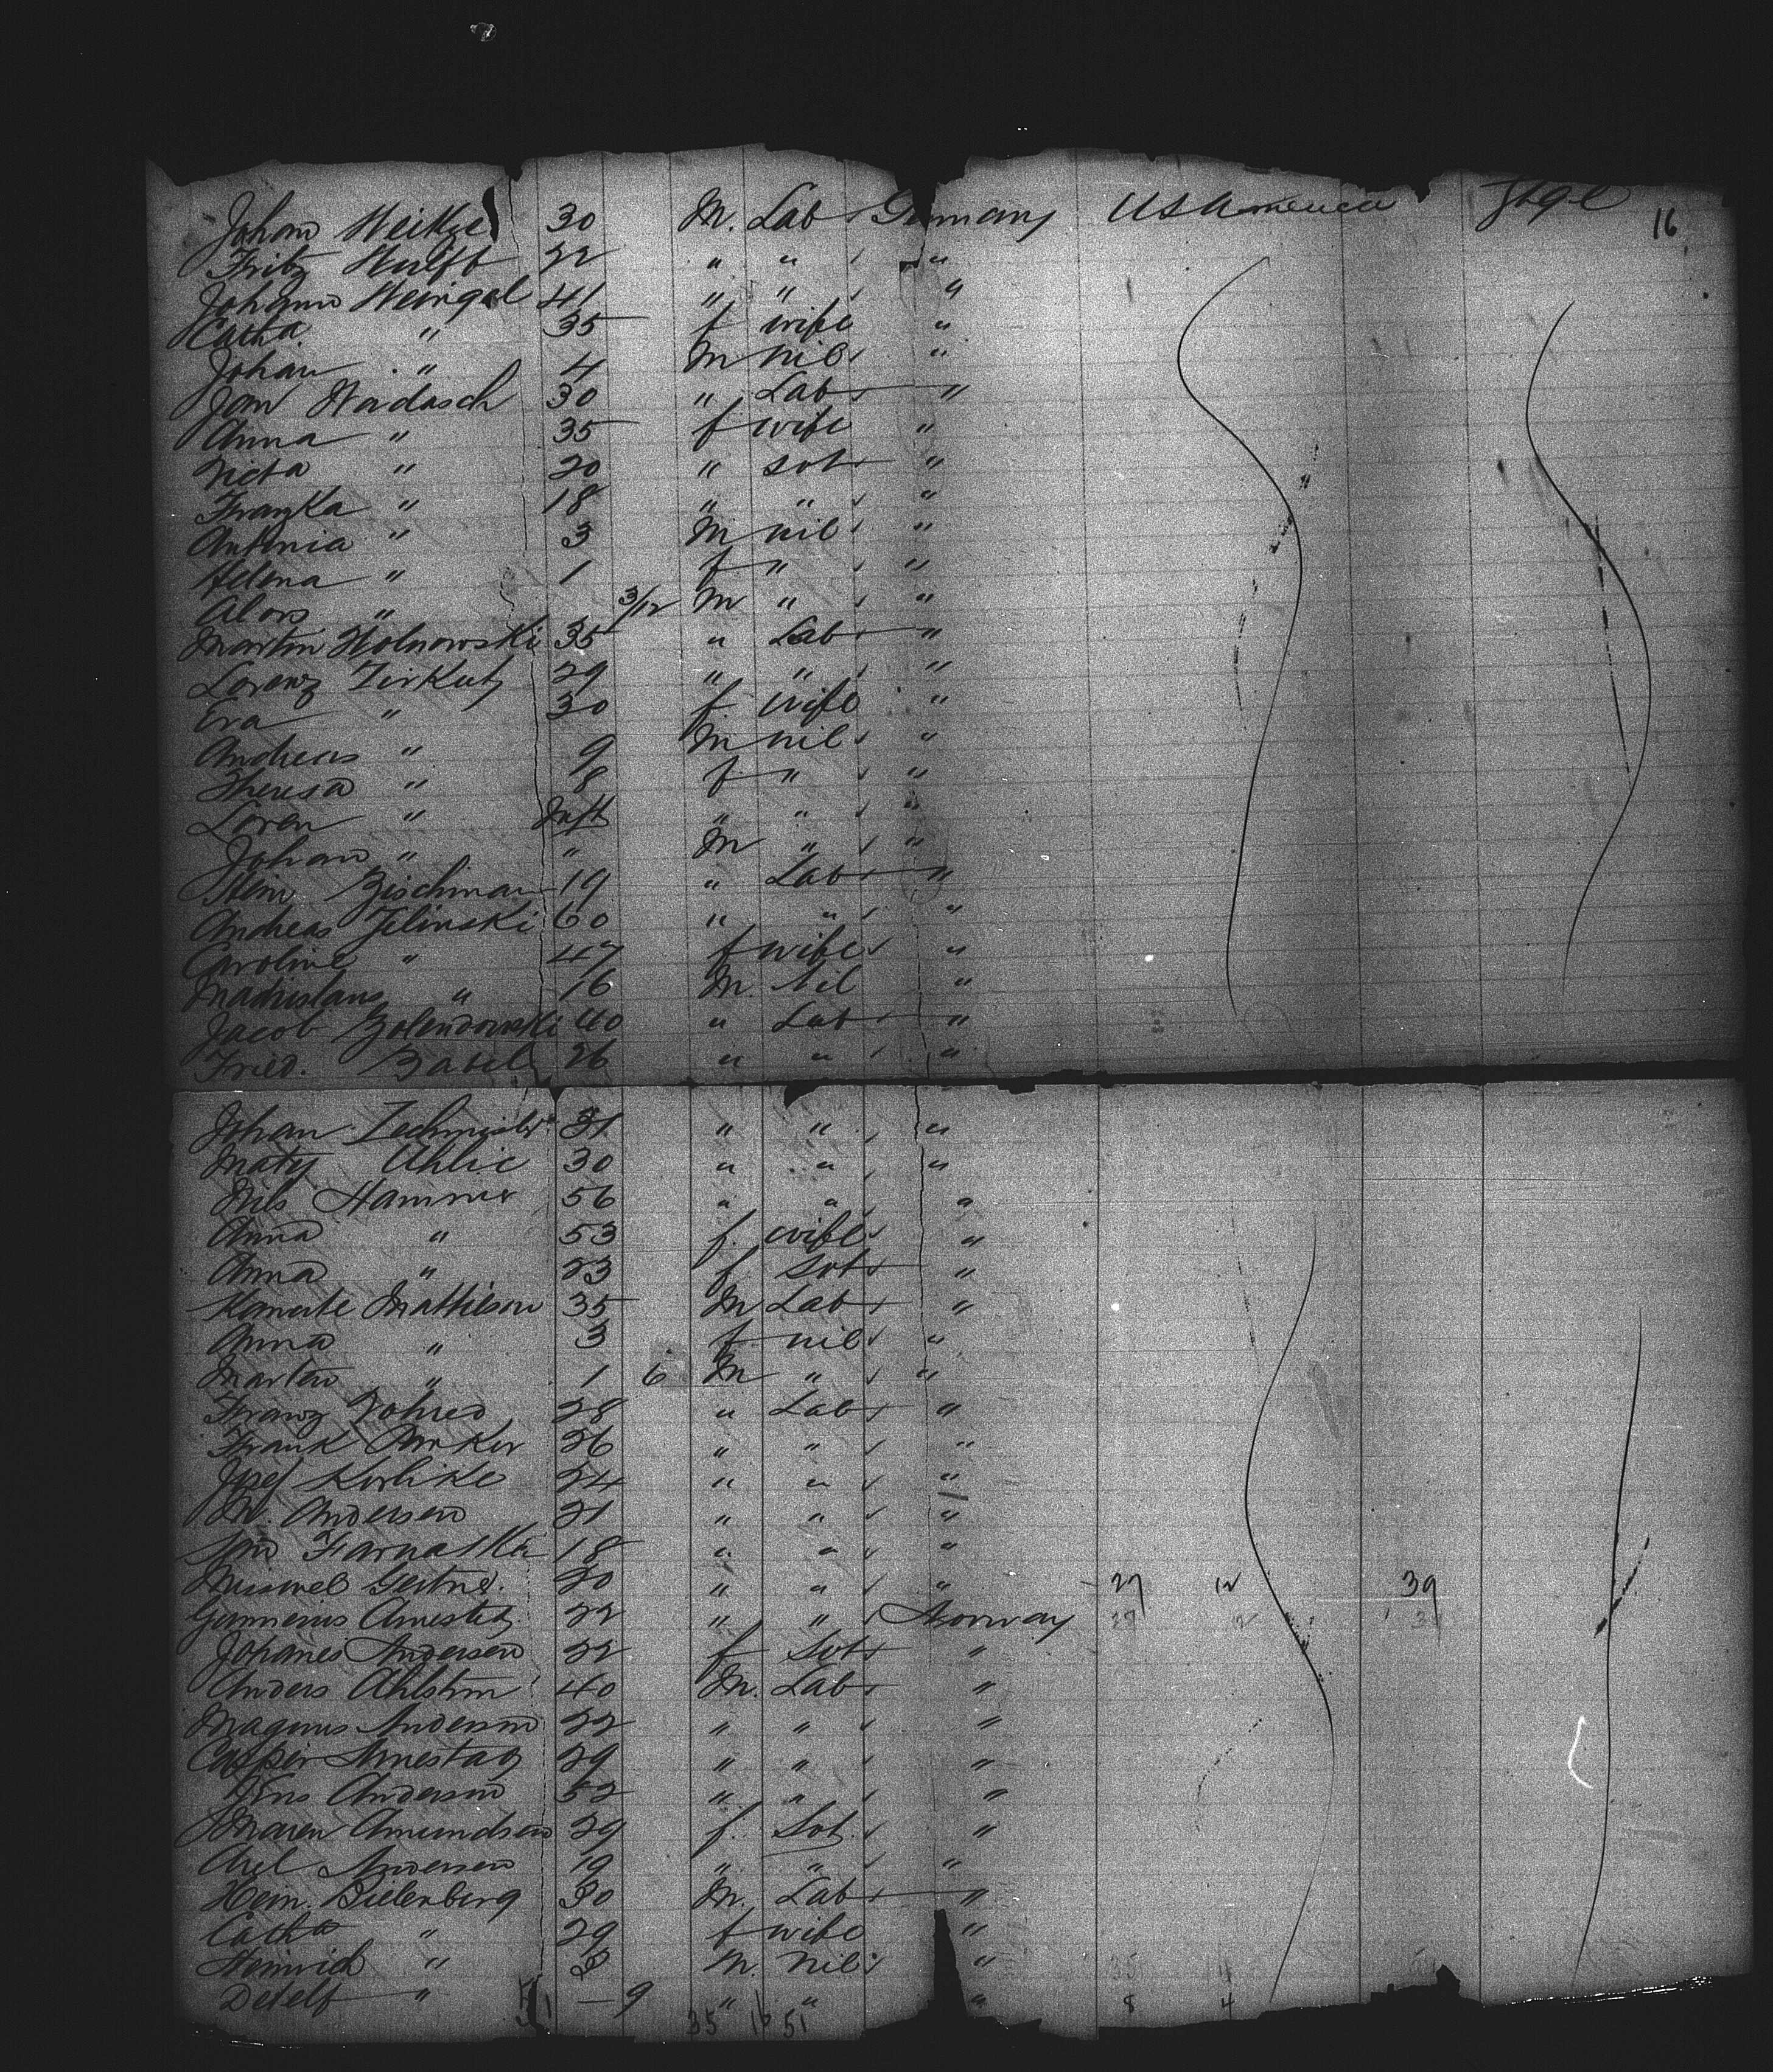 16
Johan Weitzel 30 M. Lab Germany USAmerica Stge
Fritz Wulft 22 " " "
Johann Weingel 41 " " "
Catha. " 35 f wife "
Johan " 4 M nil "
Jan Wadasch 30 " Lab "
Anna " 35 f wife "
Victa " 20 " svt "
Franzka " 18 " " "
Antonia " 3 M nil "
Helena " 1 f " "
Alois " 3/12 M " "
Martin Wolnowski 35 " Lab "
Lorenz Zirkutz 29 " " "
Eva " 30 f wife "
Andreas " 9 M nil "
Theresa " 8 f " "
Loren " Inft " " "
Johan " " M " "
Stein Bischman 19 " Lab "
Andreas Jelinski 60 " " "
Caroline " 47 f wife "
Madislaus " 16 M. Nil "
Jacob Golendowski 40 " Lab "
Fried. Babel 26 " " "
Johan Zechmeister 31 " " "
Maty Uhlic 30 " " "
Nils Hammer 56 " " "
Anna " 53 f. wife "
Anna " 23 f svt "
Mattheson 35 M Lab "
Anna " 3 f nil "
Marten " 1 6 M " "
Franz 28 " Lab "
Frank 26 " " "
Josef 24 " " "
M. Andersen 21 " " "
18 " " "
20 " " " 27 12 39
22 " " Norway
Johanes Andersen 22 f Svt "
Anders Ahlstrm 40 M. Lab "
Magnus Anderson 22 " " "
Casper Arnestad 29 " " "
Jens Anderson 52 " " "
Maren Amundsen 29 f. Svt. "
Axel Andersen 19 " " "
Hein. Bielenberg 30 M. Lab "
Catha " 29 f wife "
Heinrich " 3 M. Nil "
Detelf " — 9 " " " 8 4
35 16 51